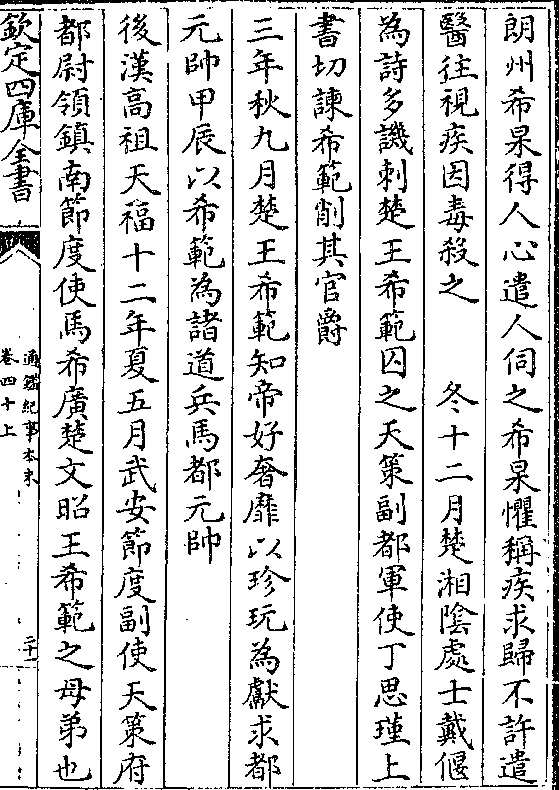 朗州希杲得人心遣人伺之希杲懼稱疾求歸不許遣
醫往視疾因毒殺之　冬十二月楚湘陰處士戴偃
為詩多譏刺楚王希範囚之天策副都軍使丁思瑾上
書切諫希範削其官爵
三年秋九月楚王希範知帝好奢靡以珍玩為獻求都
元帥甲辰以希範為諸道兵馬都元帥
後漢高祖天福十二年夏五月武安節度副使天策府
都尉領鎮南節度使馬希廣楚文昭王希範之母弟也
欽定四庫全書
通鑑紀事本末
卷四十上
二十一